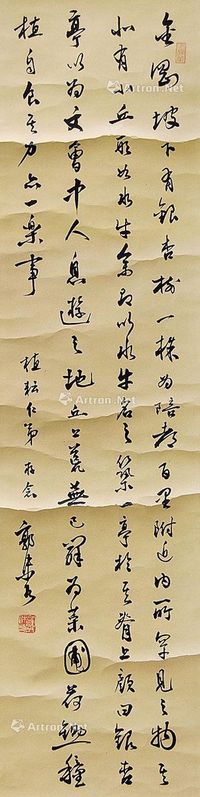 金刚坡下有银杏树一株为陪都百里附近内所罕见之物其
北有小丘形如水牛余即以水牛名之筑一亭于其脊上颜曰银杏
亭以为文会中人息游之地丘上荒芜已辟为菜圃荷锄种
植自食其力亦一乐事
植耘仁弟 存念
郭沫若
Artron.Net